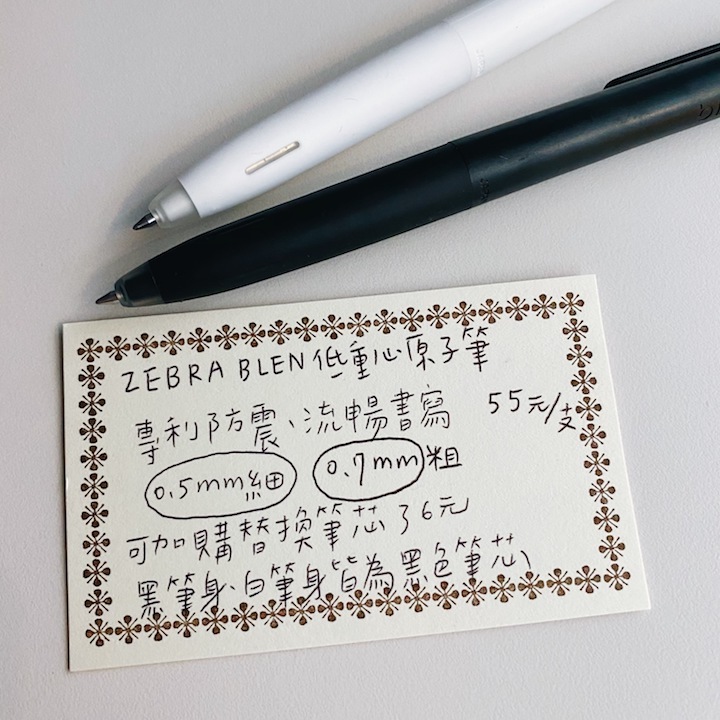 ZEBRA BLEN 低重心原子筆
專利防震、流暢書寫 55元/支
0.5mm細 0.7mm粗
可加購替換筆芯36元
黑筆身、白筆身皆為黑色筆芯